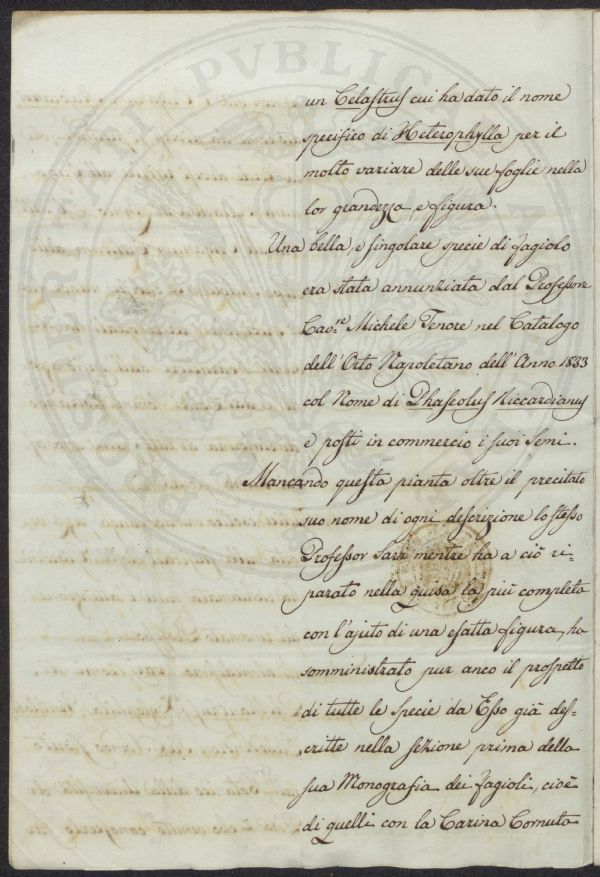 un Celastrus cui ha dato il nome
specifico di Heterophylla per il
molto variare delle sue foglie nella
lor grandezza, e figura.
Una bella, e singolare specie di fagiolo
era stata annunziata dal Professore
Cav.re Michele Tenore nel Catalogo
dell'Orto Napoletano dell'Anno 1833
col Nome di Phaseolus Riccardianus
e posti in commercio i suoi Semi.
Mancando questa pianta oltre il precitato
suo nome di ogni descrizione lo stesso
Professor Savi mentre ha a ciò ri=
parato nella guisa la più completa
con l'ajuto di una esatta figura, ha
somministrato pur anco il prospetto
di tutte le specie da Esso già des=
critte nella sezione prima della
sua Monografia dei fagioli, cioè
di quelli con la Carina Cornuta